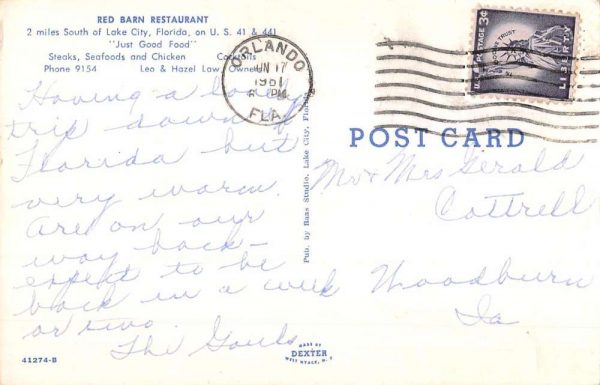 RED BARN RESTAURANT
2 miles South of Lake City, Florida, on U. S. 41 & 441
"Just Good Food"
Steaks, Seafoods and Chicken Cocktails
Phone 9154 Leo & Hazel Law, Owners
Having a lovely
trip down to
Florida but
very warm.
Are on our
way back -
expect to be
back in a week
or two.
The Goulds
41274-B
Pub. by Baas Studio, Lake City, Florida
MADE BY
DEXTER
WEST NYACK, N. Y.
ORLANDO
JUN 17
1961
PM
FLA.
U.S. POSTAGE 3¢
IN GOD WE TRUST
LIBERTY
POST CARD
Mr & Mrs Gerald
Cottrell
Woodburn
Ia